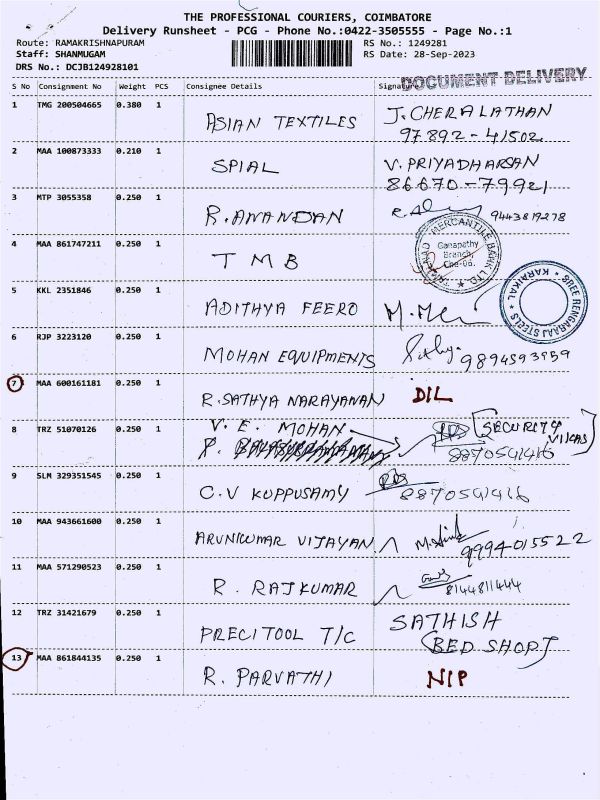 THE PROFESSIONAL COURIERS, COIMBATORE
Delivery Runsheet - PCG - Phone No.:0422-3505555 - Page No.:1
Route: RAMAKRISHNAPURAM RS No.: 1249281
Staff: SHANMUGAM RS Date: 28-Sep-2023
DRS No.: DCJB124928101
DOCUMENT DELIVERY
S No Consignment No Weight PCS Consignee Details
1 TMG 200504665 0.380 1 ASIAN TEXTILES J. CHERALATHAN
97892-41502
2 MAA 100873333 0.210 1 SPIAL V. PRIYADHARSAN
86670-79921
3 MTP 3055358 0.250 1 R. ANANDAN 9443819278
4 MAA 861747211 0.250 1 TMB
MERCANTILE BANK LTD.
Ganapathy
Branch,
Cbe-06.
5 KKL 2351846 0.250 1 ADITHYA FEERO
SREE RENGARAAJ STEELS
KARAIKAL
6 RJP 3223120 0.250 1 MOHAN EQUIPMENTS 9894593959
7 MAA 600161181 0.250 1 R. SATHYA NARAYANAN DIL
8 TRZ 51070126 0.250 1 V. E. MOHAN [SECURITY
8870591416
9 SLM 329351545 0.250 1 C.V KUPPUSAMY
8870591416
10 MAA 943661600 0.250 1 ARUNKUMAR VIJAYAN 9994015522
11 MAA 571290523 0.250 1 R. RAJKUMAR 8144811444
12 TRZ 31421679 0.250 1 PRECITOOL T/C SATHISH
(BED SHOP)
13 MAA 861844135 0.250 1 R. PARVATHI NIP